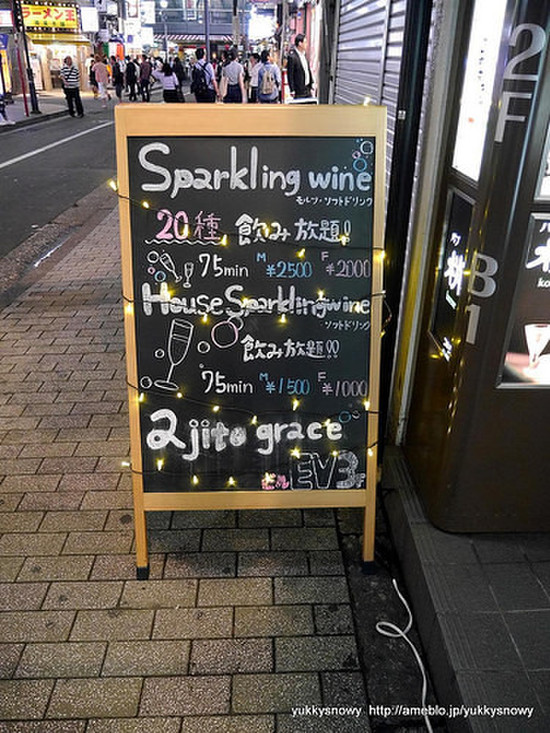 ラーメン王
Sparkling wine
モルツ・ソフトドリンク
20種 飲み放題!!
75min M¥2500 F¥2000
House Sparkling wine
・ソフトドリンク
飲み放題!!
75min M¥1500 F¥1000
2jito grace
EV3F
2F
B1
yukkysnowy http://ameblo.jp/yukkysnowy